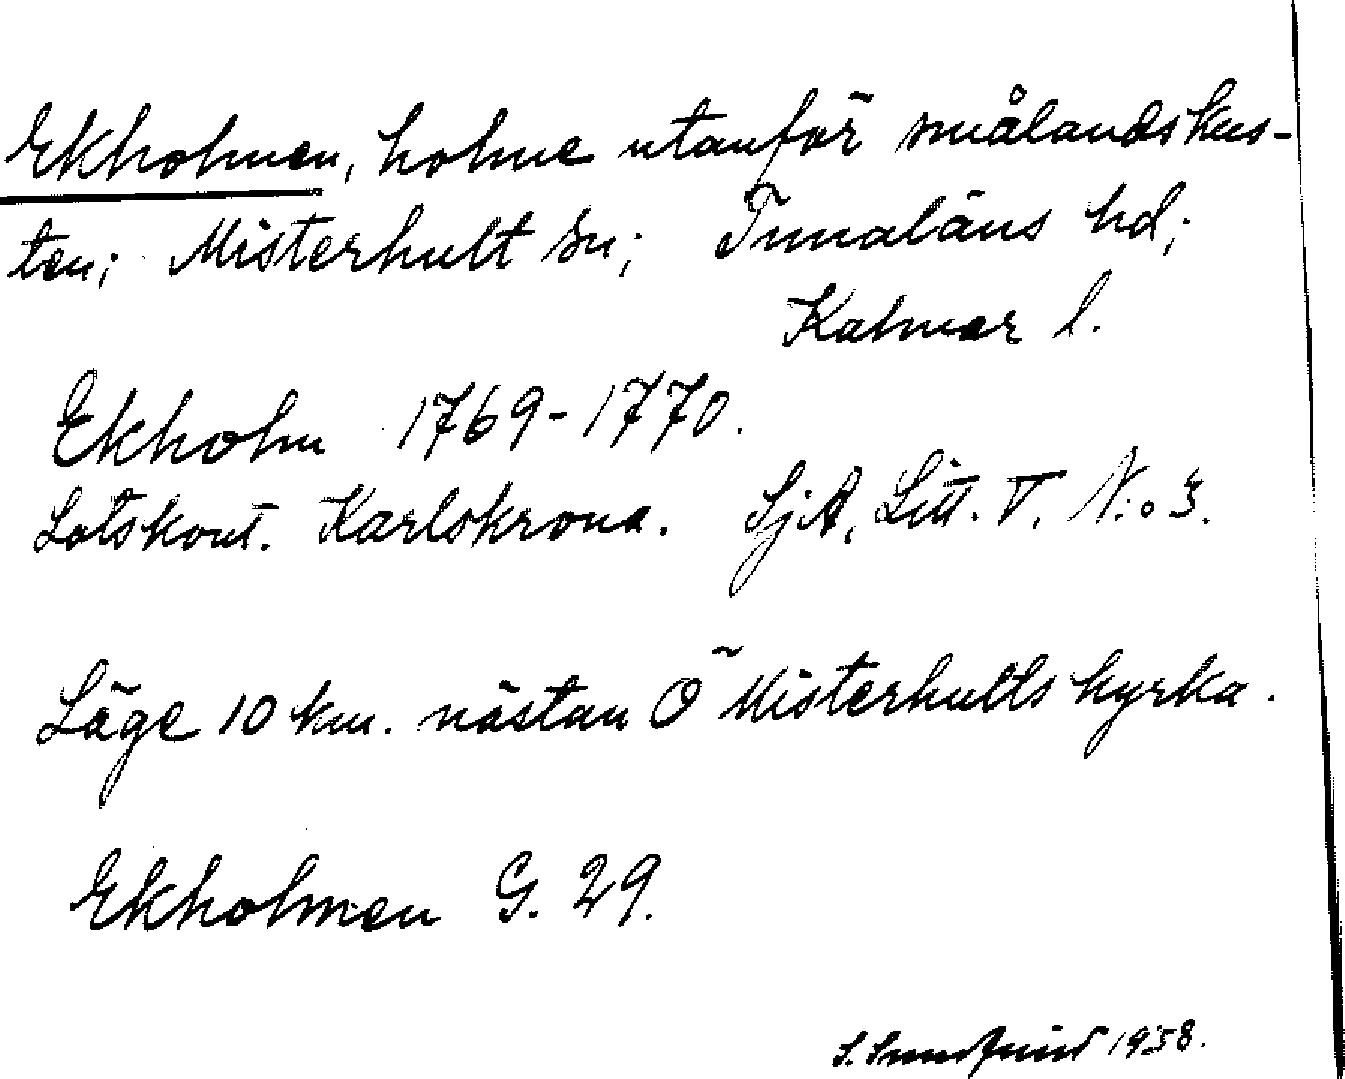 Ekholmen, holme utanför smålandskus-
ten; Misterhult sn; Tunaläns hd;
Kalmar l.
Ekholm 1769-1770.
Lotskont. Karlskrona. SjA, Litt. T. N:o 3.
Läge 10 km. nästan Ö Misterhults kyrka.
Ekholmen G. 29.
S. 1938.